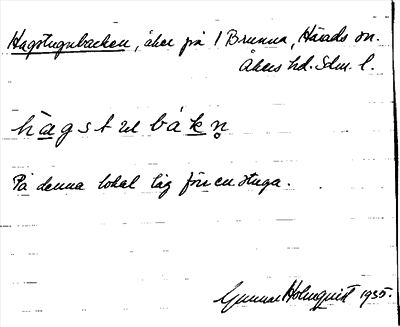 Hagstugubacken, åker på 1 Brunna, Härads sn.
Åkers hd. Sdm. l.
hagstubakn
På denna lokal låg förr en stuga.
Gunnar Holmquist 1935.